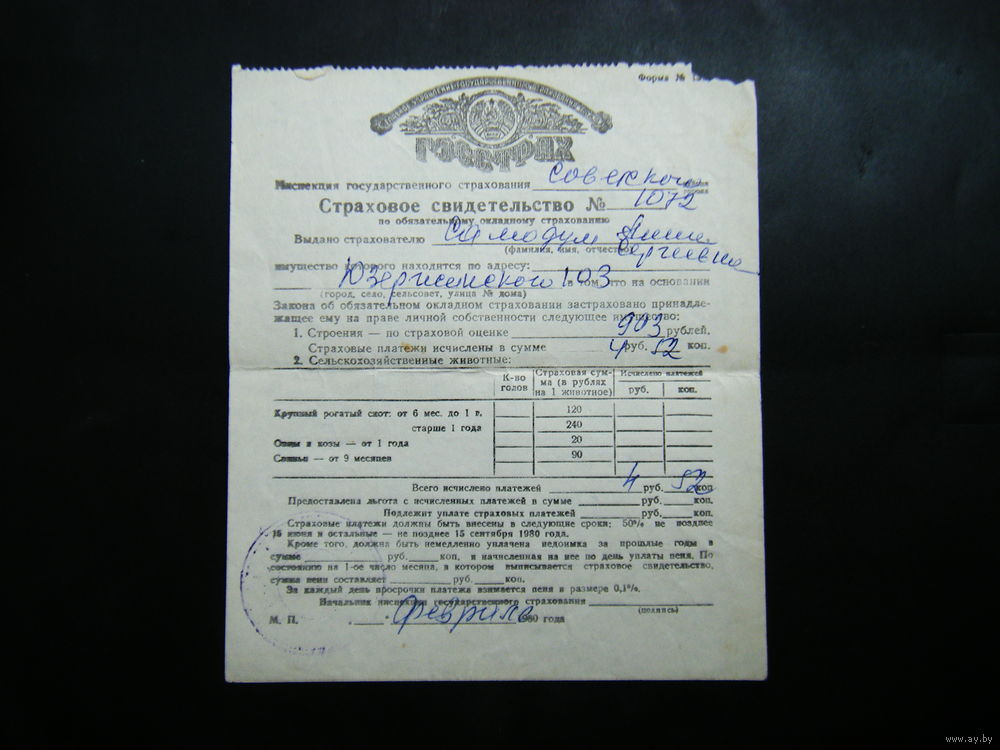 Форма №
ГОССТРАХ
Инспекция государственного страхования Советского
Страховое свидетельство № 1072
по обязательному окладному страхованию
Выдано страхователю Самодум Анне Сергеевне
(фамилия, имя, отчество)
имущество которого находится по адресу:
Дзержинского 103 в том, что на основании
(город, село, сельсовет, улица № дома)
Закона об обязательном окладном страховании застраховано принадле-
жащее ему на праве личной собственности следующее имущество:
1. Строения — по страховой оценке 903 рублей.
Страховые платежи исчислены в сумме 4 руб. 52 коп.
2. Сельскохозяйственные животные:
К-во голов
Страховая сум-
ма (в рублях
на 1 животное)
Исчислено платежей
руб. коп.
Крупный рогатый скот: от 6 мес. до 1 г. 120
старше 1 года 240
Овцы и козы — от 1 года 20
Свиньи — от 9 месяцев 90
Всего исчислено платежей 4 руб. 52 коп
Предоставлена льгота с исчисленных платежей в сумме руб. коп.
Подлежит уплате страховых платежей руб. коп.
Страховые платежи должны быть внесены в следующие сроки: 50% не позднее
15 июня и остальные — не позднее 15 сентября 1980 года.
Кроме того, должна быть немедленно уплачена недоимка за прошлые годы в
сумме руб. коп, и начисленная на нее по день уплаты пеня. По
состоянию на 1-ое число месяца, в котором выписывается страховое свидетельство,
сумма пени составляет руб. коп.
За каждый день просрочки платежа взимается пеня в размере 0,1%.
Начальник инспекции государственного страхования
(подпись)
М. П. февраль 1980 года
www.ay.by